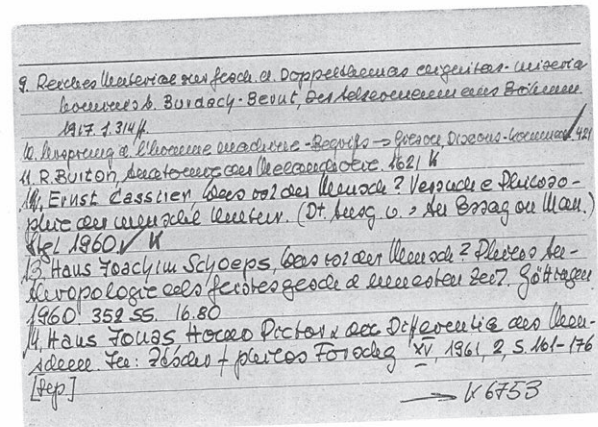 9. Reiches Material zur Gesch. d. Doppelthemas dignitas - miseria
hominis b. Burdach-Bernt, Der Ackermann aus Böhmen
1917. I. 314 ff.
10. Ursprung d. l'homme machine-Begriffs → Gilson, Discours-
11. R. Burton, Anatomie der Melancholie. 1621 K
12. Ernst Cassirer, Was ist der Mensch? Versuch e Philoso-
phie der menschl Kultur. (Dt. Ausg. v. > An Essay on Man.)
Stgt 1960 K
13. Hans Joachim Schoeps, Was ist der Mensch? Philos An-
thropologie als Geistesgesch d neuesten Zeit. Göttingen
1960. 352 SS. 16.80
14. Hans Jonas Homo Pictor u. die Differentia des Men-
schen. In: Ztschr f philos Forschg XV, 1961, 2, S. 161-176
[Sep]
→ K 6753